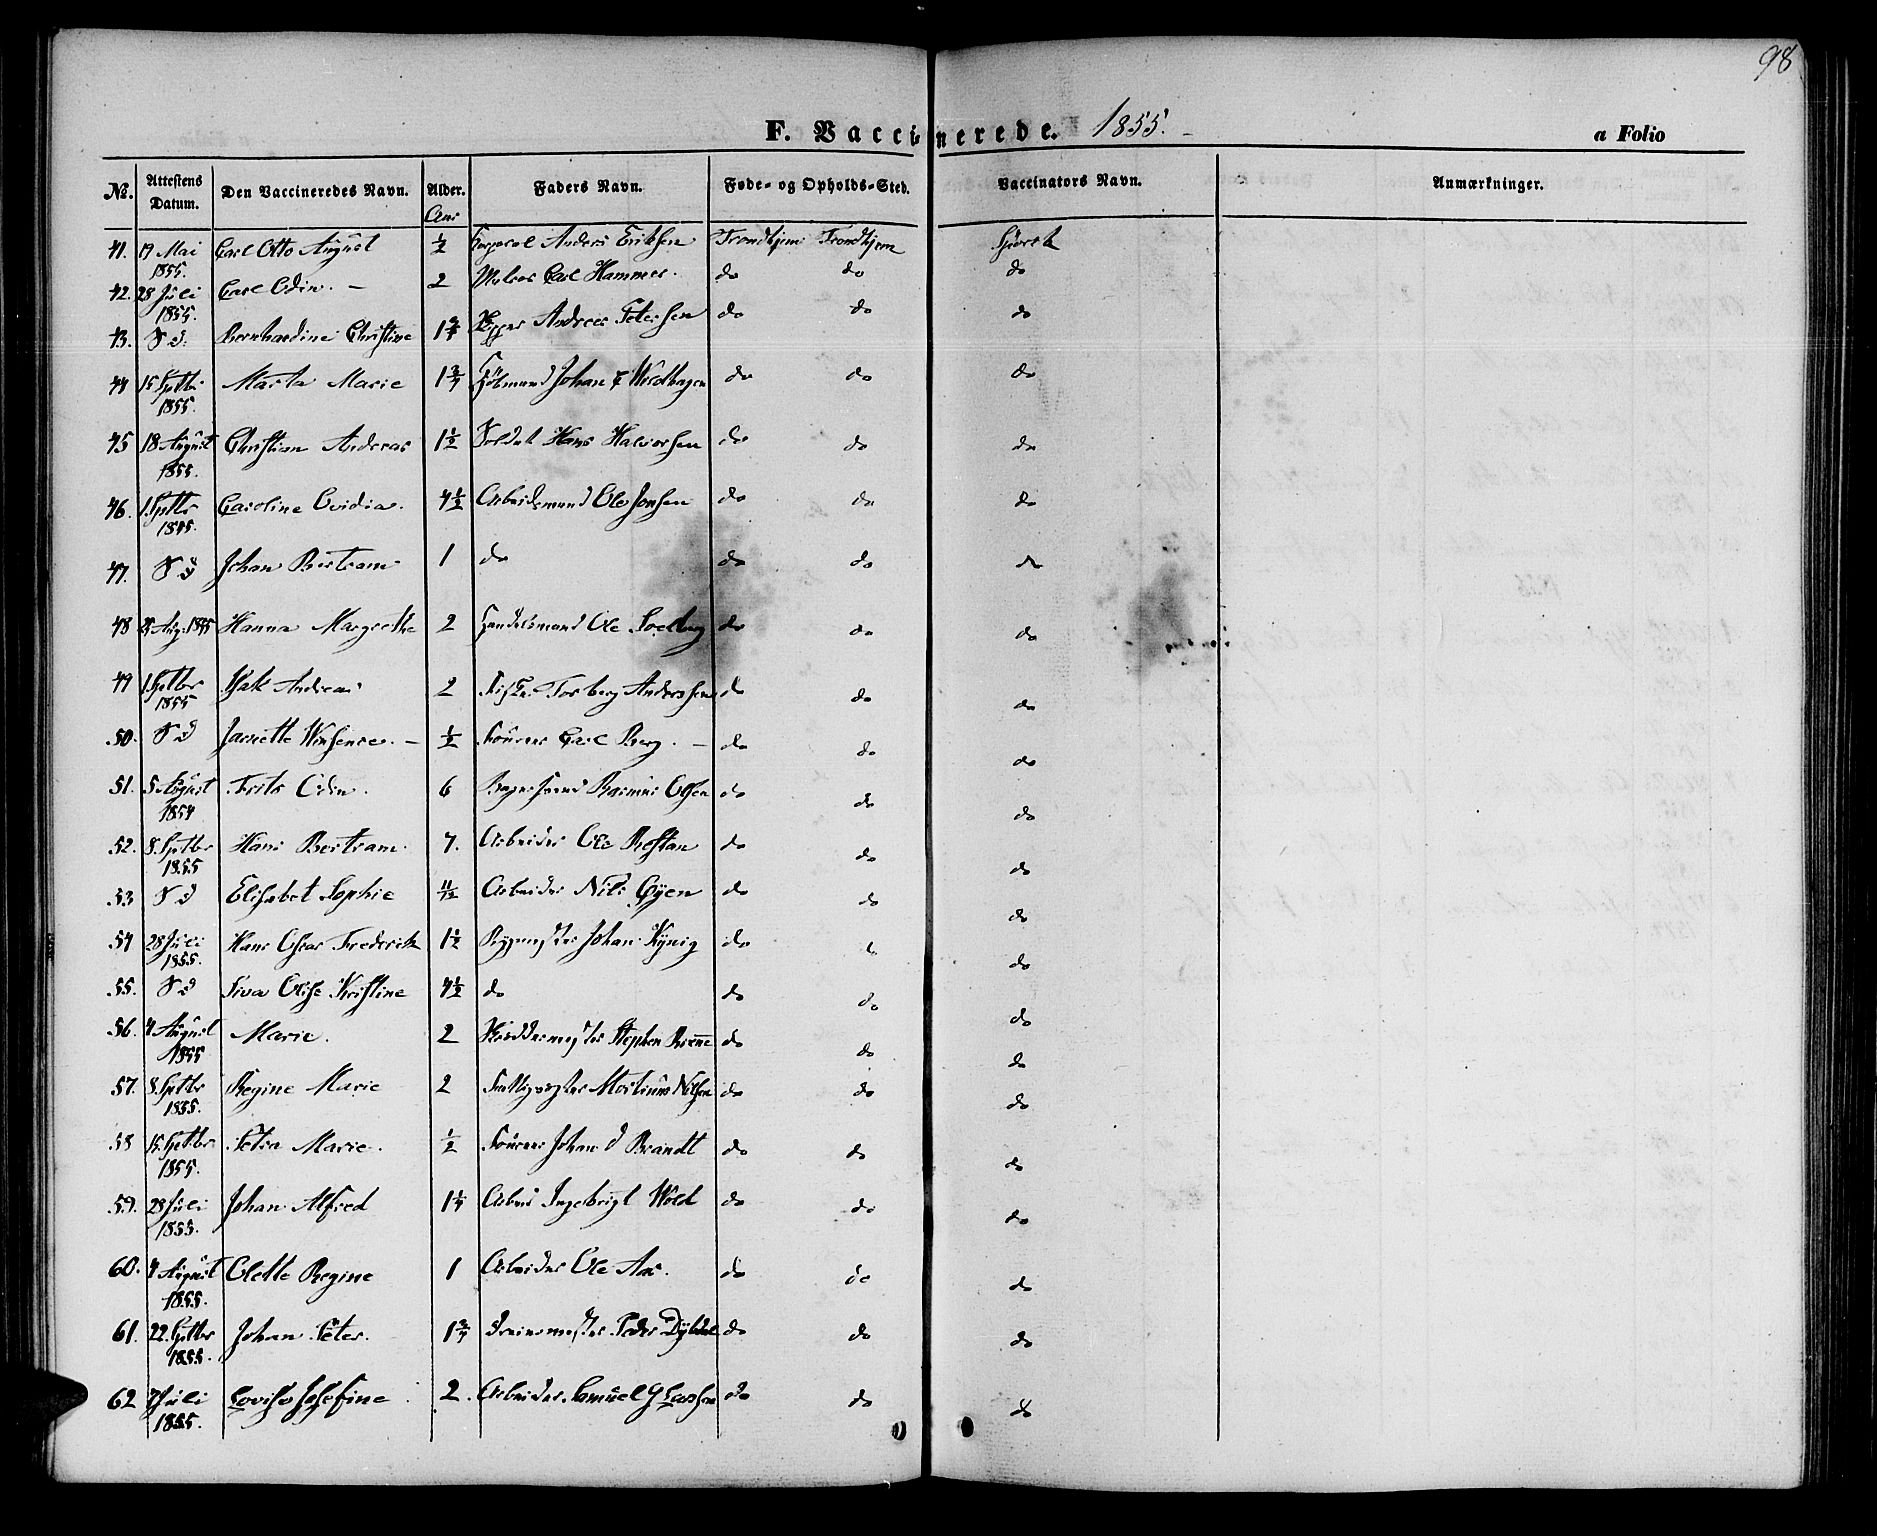 98
F. Vaccinerede. 1855. a Folio
No. Attestens Datum. Den Vaccineredes Navn. Alder. Faders Navn. Føde- og Opholds-Sted. Vaccinators Navn. Anmærkninger.
Aar
41. 19 Mai 1855. Carl Otto August ½ Korporal Anders Eriksen Trondhjem Trondhjem
42. 28 Juli 1855. Carl Odin. – 2 Carl Hammer. do do do
43. S. d. Bernhardine Christine 1¾ Andreas Petersen do do do
44 15 Septbr 1855. Marta Marie 1¾ Johan do do do
45 18 August 1855. Christian Andreas 1½ Soldat Hans Halvorsen do do do
46. 1. Septbr 1855. Caroline Ovidia. 4½ Arbeidsmand Ole Jonsen do do do
47. S d Johan Bertram 1 do do do do
48 Aug. 1855 Hanna Margrethe 2 Handelsmand Ole do do do
49 1. Septbr 1855 Isak Andreas 2 Torberg Anderssen do do do
50. S d ½ Carl Berg. – do do do
51. 5 August 1854 Frits Odin. 6 Rasmus Olsen do do do
52. 8. Septbr 1855 Hans Bertram. 7. Arbeider Ole do do do
53 S d Elisabet Sophie Arbeider Nils Øyen do do do
54 28 Juli 1855. Hans Oscar Frederik 1½ Johan do do
55. S d Olise Kristine 4½ do do do do
56. 4 August 1855 Marie. 2 Stephen do do do
57. 8. Septbr 1855. Regine Marie 2 Martinus Nilsen do do do
58 15. Septbr 1855. Petra Marie. ½ Johan Brandt do do do
59. 28 Juli 1855. Johan Alfred 1¼ Arbeid Ingebrigt Wold do do do
60. 4 August 1855. Olette Regine 1 Arbeider Ole Aas. do do do
61. 22. Septbr 1855. Johan Peter. 1¾ Peder do do do
62 7 Juli 1855. Lovise Josefine 2. Arbeider Samuel G Larssen do do do